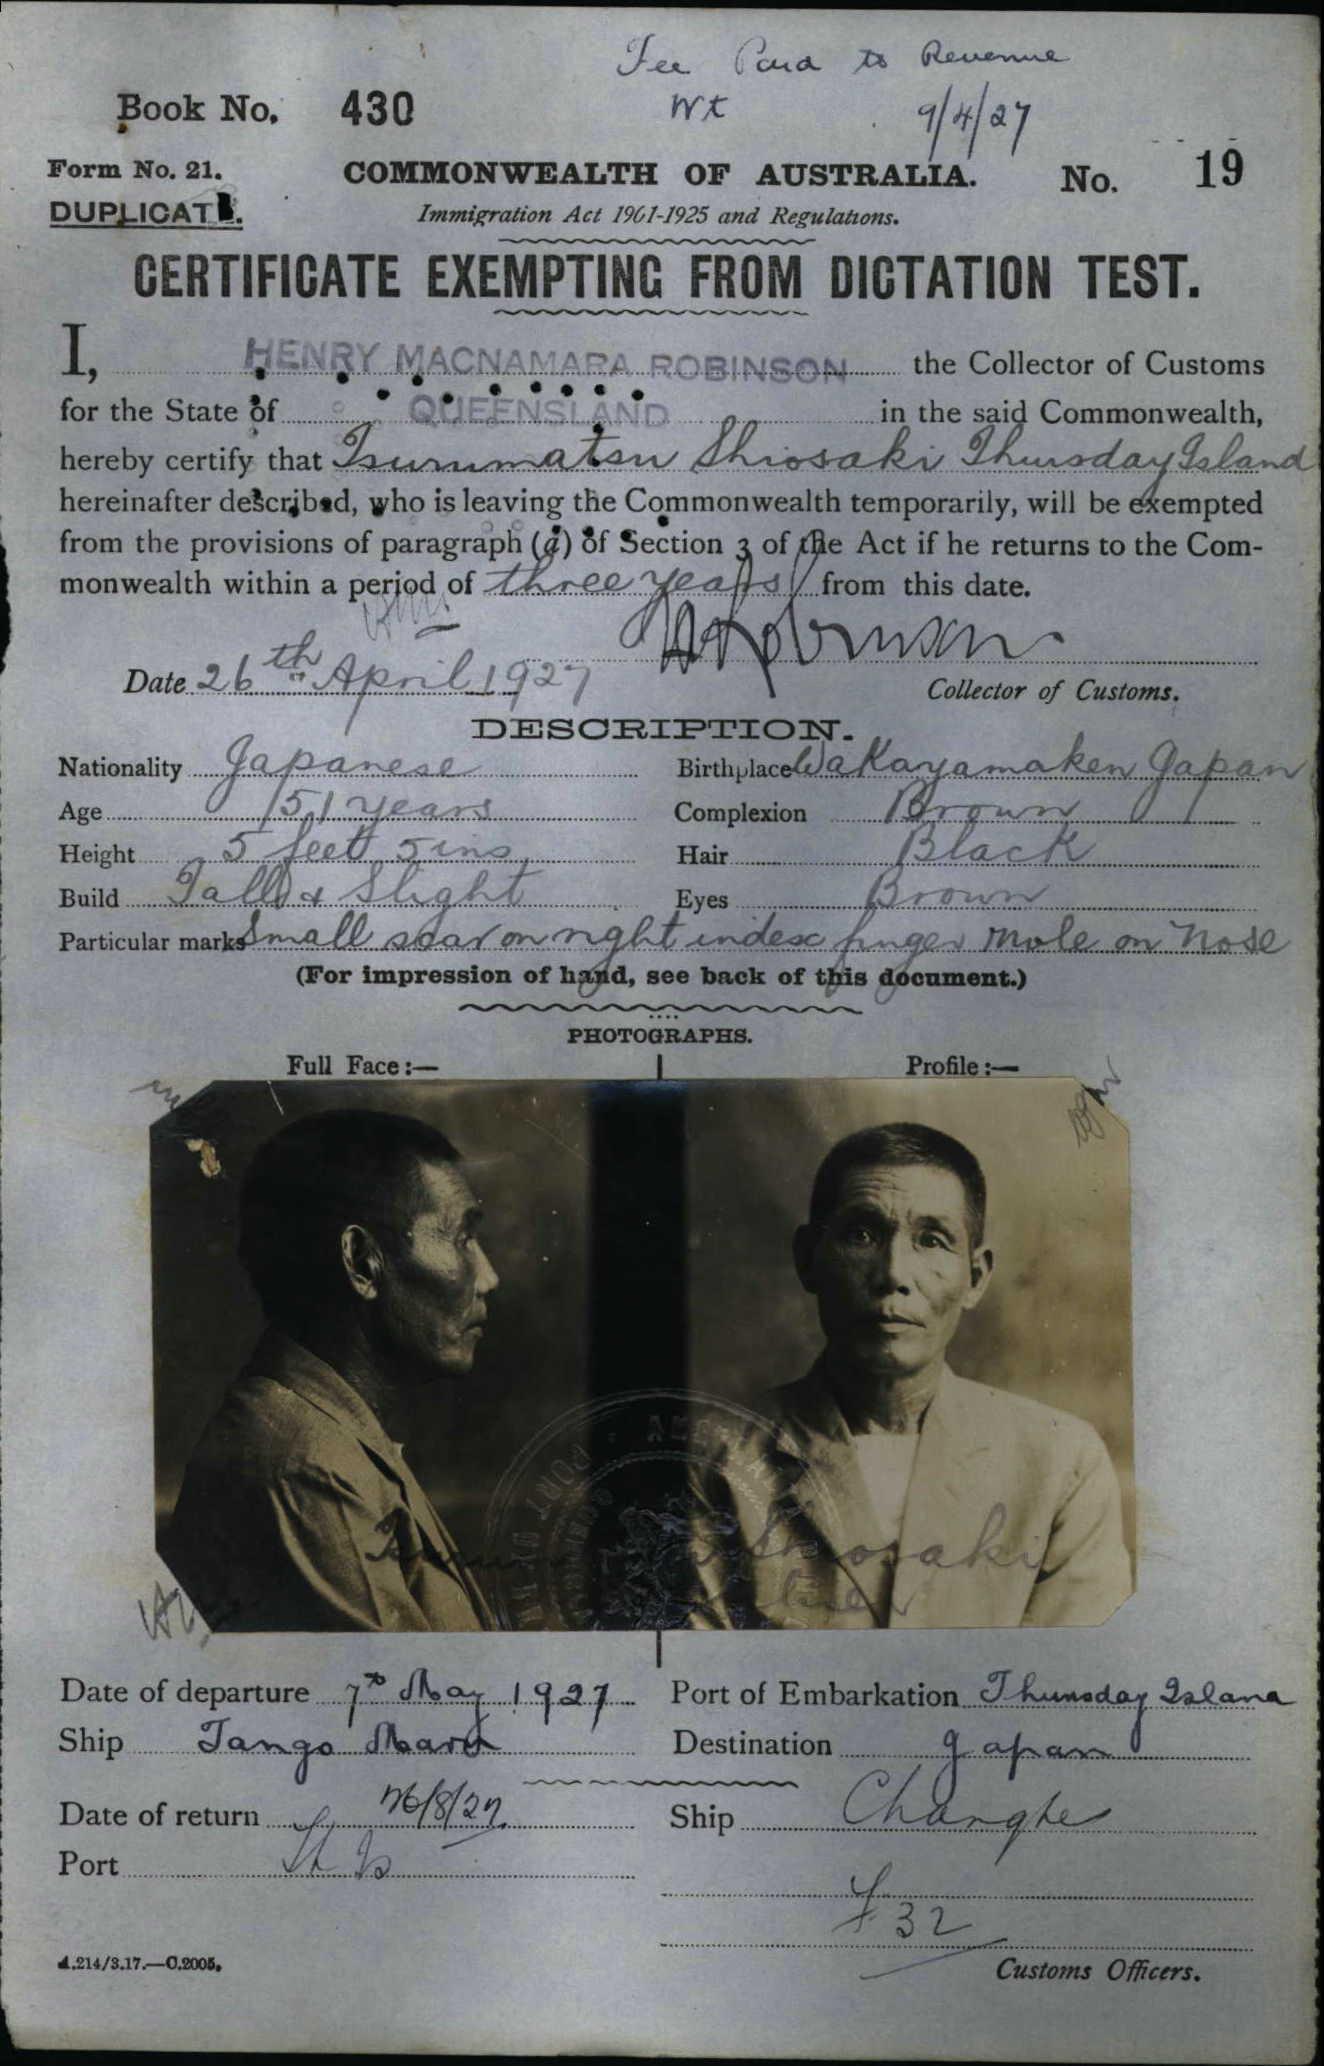 Fee Paid to Revenue
Book No. 430 Wt 9/4/27
Form No. 21. COMMONWEALTH OF AUSTRALIA. No. 19
DUPLICATE.
Immigration Act 1901-1925 and Regulations.
CERTIFICATE EXEMPTING FROM DICTATION TEST.
I, HENRY MACNAMARA ROBINSON the Collector of Customs
for the State of QUEENSLAND in the said Commonwealth,
hereby certify that Tsurumatsu Shiosaki Thursday Island
hereinafter described, who is leaving the Commonwealth temporarily, will be exempted
from the provisions of paragraph (a) of Section 3 of the Act if he returns to the Com-
monwealth within a period of three years from this date.
HRobinson
Date 26th April 1927 Collector of Customs.
DESCRIPTION.
Nationality Japanese Birthplace Wakayamaken Japan
Age 51 years Complexion Brown
Height 5 feet 5 ins Hair Black
Build Tall & Slight Eyes Brown
Particular marks Small scar on right index finger mole on nose
(For impression of hand, see back of this document.)
PHOTOGRAPHS.
Full Face:— Profile:—
Shiosaki
Date of departure 7th May 1927 Port of Embarkation Thursday Island
Ship Tango Maru Destination Japan
Date of return 26/8/27. Ship Changte
Port Th Is
F 32
A.214/3.17.—C.2005. Customs Officers.